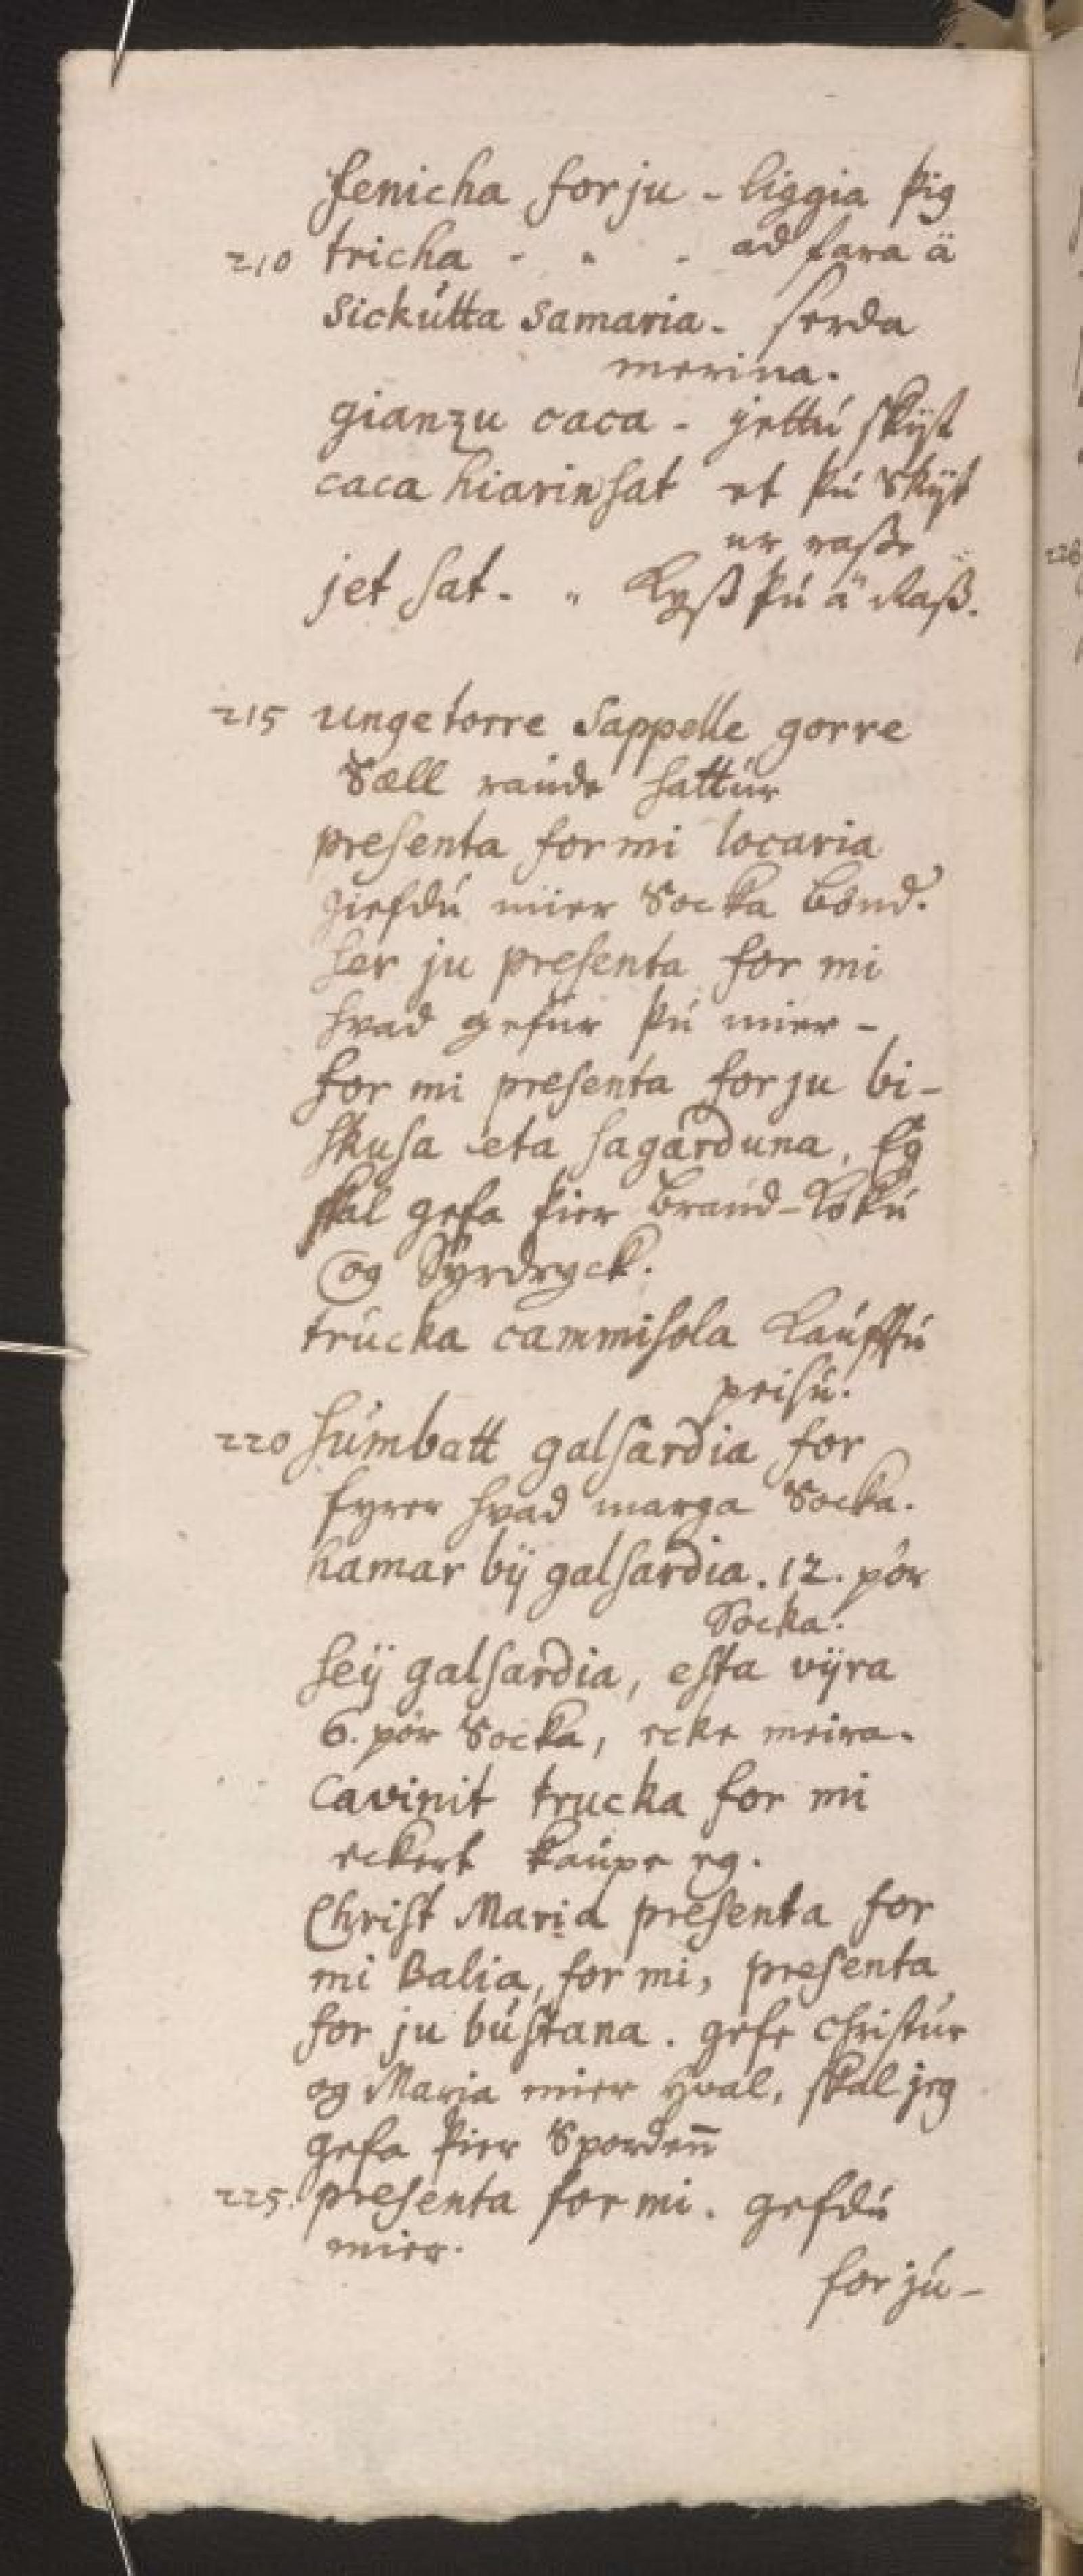 fenicha for ju - liggia þig
210 tricha - " - ad fara ä
Sickútta Samaria - serda
merina.
gianzu caca - jettú skÿt
caca hiarinsat et þú Skÿt
ur rasse
jet sat - " Kyss þú ä Rass.
215 Ungetorre Sappelle gorre
Sæll raúde hattúr
presenta for mi locaria
giefdú mier Socka bönd.
ser ju presenta for mi
hvad gefúr þú mier -
for mi presenta for ju bi-
skusa eta sagarduna. Eg
skal gefa þier braud-köku
og Sÿrdryck.
trúcka cammisola Kaúffú
peisú.
220 súmbatt galsardia for
fyrer hvad marga Socka.
hamar bÿ galsardia. 12. pör
Socka.
seÿ galsardia, esta vÿra
6. pör Socka, ecke meira.
Cavinit trucka for mi
eckert kaúpe eg.
Christ Maria presenta for
mi Balia, for mi, presenta
for ju bústana. gefe Christúr
og Maria mier Hval, skal jeg
gefa þier Spordeñ
225. presenta for mi. gefdú
mier.
for jú -